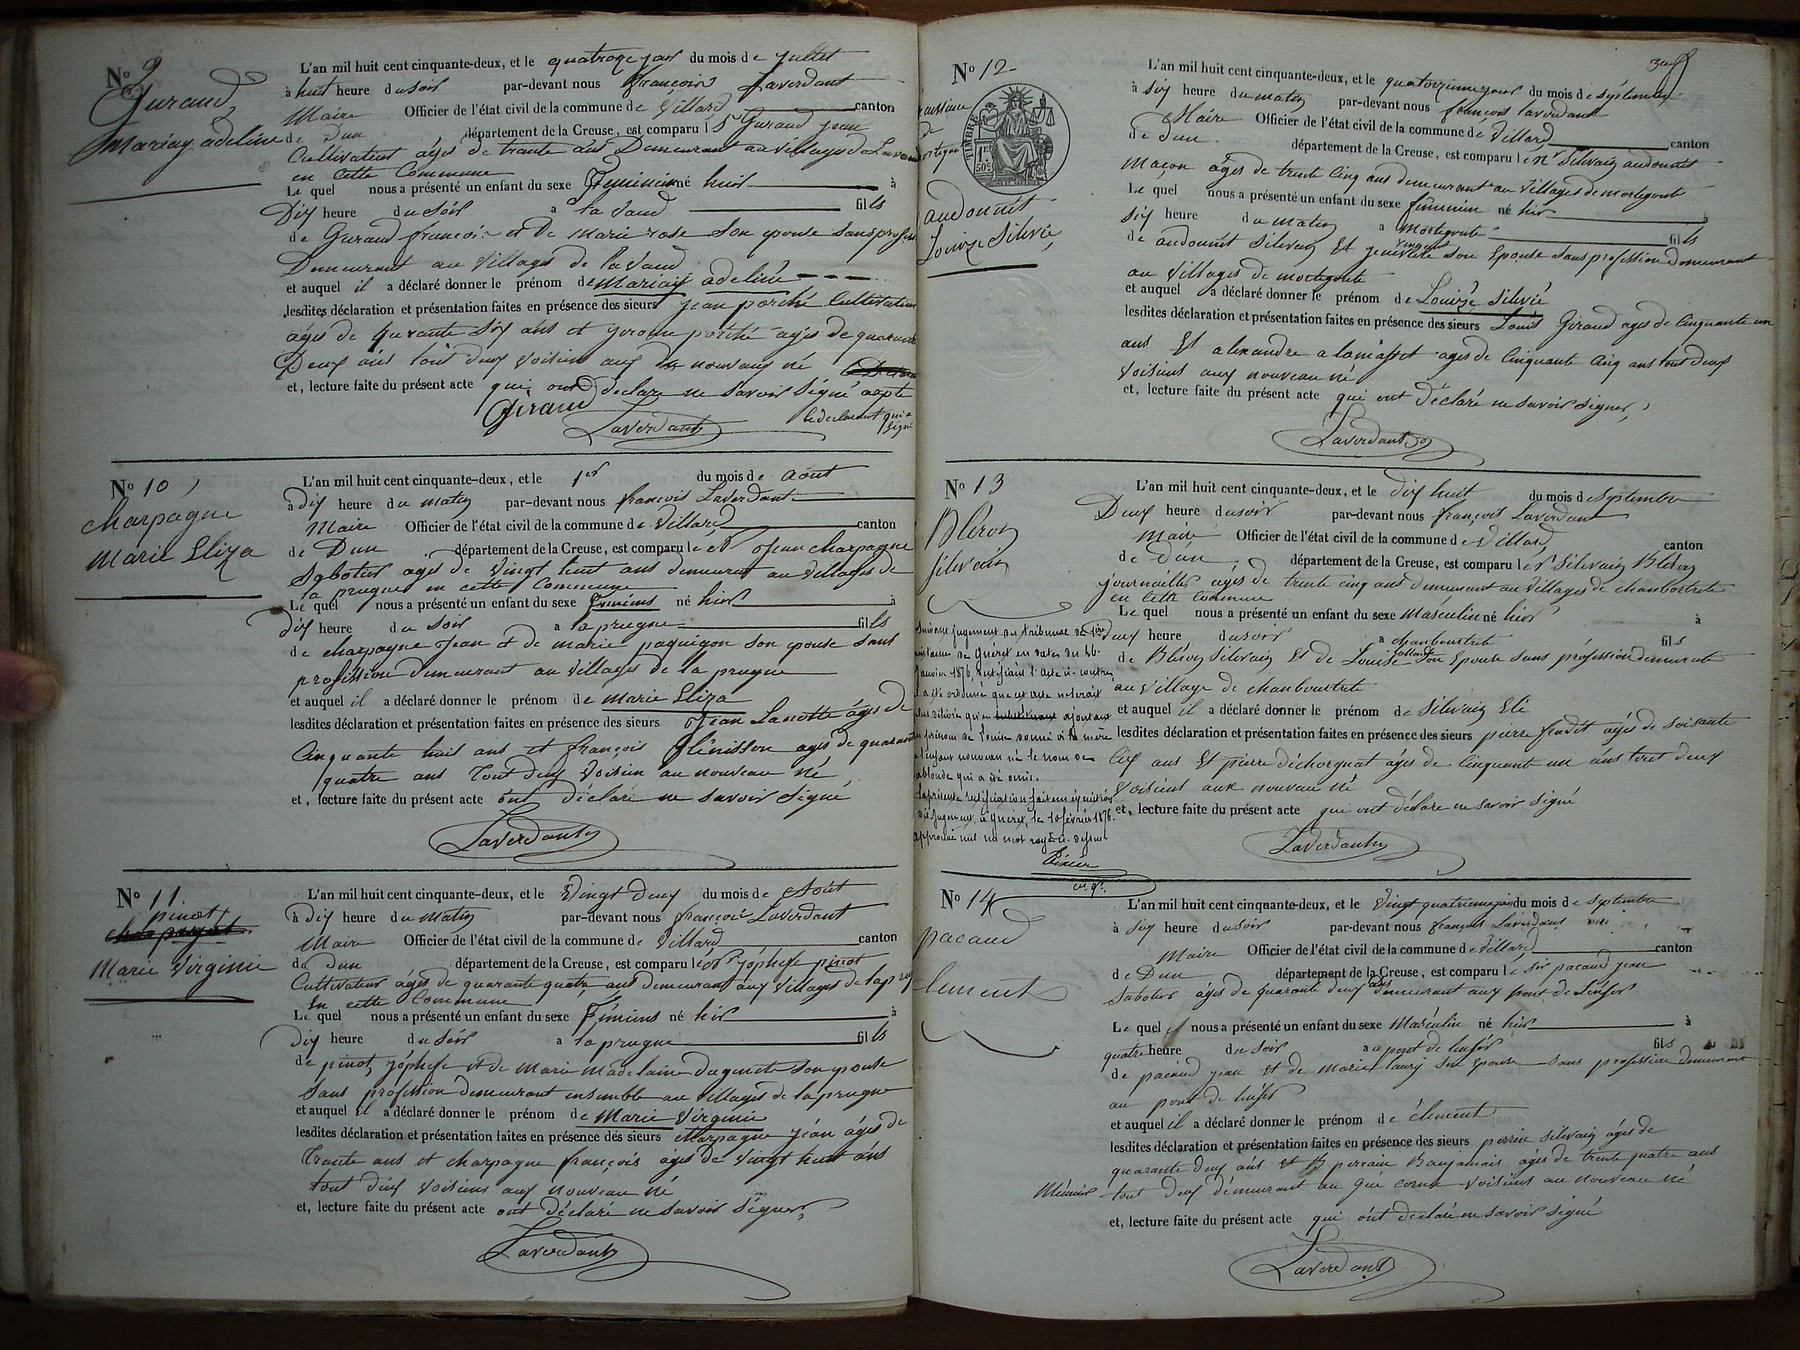 No 9
Guraud
Mariay adeline
L'an mil huit cent cinquante-deux, et le quatorze jour du mois de juillet
à huit heure du soir par-devant nous françois Laverdant
Maire Officier de l'état civil de la commune de Villard canton
de Dun département de la Creuse, est comparu l Sr Guraud jean
Cultivateur agés de trante ans Demeurant au villages de Lavaud
en Cette Commune
Le quel nous a présenté un enfant du sexe feminin né hier à
Dix heure du soir a la Vaud fil ls
de Guraud françois et de Marie rose son epouse sans profession
Demeurant au villages de la Vaud
et auquel il a déclaré donner le prénom de Mariay adeline
lesdites déclaration et présentation faites en présence des sieurs jean porché Cultivateur
agés de qurante six ans et porché agés de quarante
Deux ans tout deux voisins aux nouveaux né
et, lecture faite du présent acte qui ont declare ne savoir signé
le declarant qui a
signé
Giraud
Laverdant
No 10
charpagne
Marie Eliza
L'an mil huit cent cinquante-deux, et le 1er du mois de Août
à dix heure du matin par-devant nous françois Laverdant
Maire Officier de l'état civil de la commune de Villard canton
de Dun département de la Creuse, est comparu le Sr Jean charpagne
Sabotier agés de vingt huit ans demeurant au villages de
la prugne en cette Commune
Le quel nous a présenté un enfant du sexe féminins né hier à
dix heure du soir a la prugne fil ls
de charpagne Jean et de marie paquignon son epouse sans
profession demeurant au villages de la prugne
et auquel il a déclaré donner le prénom de marie Eliza
lesdites déclaration et présentation faites en présence des sieurs Jean Lanotte agés de
Cinquante huit ans et françois Glénisson agés de quarante
quatre ans tout deux voisin au nouveau né
et, lecture faite du présent acte ont déclaré ne savoir signé
Laverdant
No 11
pinot
Marie Virginie
L'an mil huit cent cinquante-deux, et le vingt deux du mois de Août
à dix heure du matin par-devant nous françois Laverdant
Maire Officier de l'état civil de la commune de Villard canton
de Dun département de la Creuse, est comparu le Sr jophese pinot
Cultivateur agés de quarante quatre ans demeurant aux villages de la prugne
En cette Commune
Le quel nous a présenté un enfant du sexe féminins né hier à
dix heure du soir a la prugne fil ls
de pinot jophese et de Marie Madelaine son epouse
sans profession demeurant ensemble au villages de la prugne
et auquel il a déclaré donner le prénom de Marie Virginie
lesdites déclaration et présentation faites en présence des sieurs charpagne jean agés de
trante ans et charpagne françois agés de vingt huit ans
tout deux voisins aux nouveau né
et, lecture faite du présent acte ont déclaré ne savoir signer,
Laverdant
No 12
TIMBRE
1F.
50c
audonnet
Louize Silvie
L'an mil huit cent cinquante-deux, et le quatorzieme jour du mois de septembre
à six heure du matin par-devant nous françois laverdant
Maire Officier de l'état civil de la commune de Villard canton
de Dun département de la Creuse, est comparu le Sr Silvain audonnet
Maçon agés de trente cinq ans demeurant au villages de mortegoute
Le quel nous a présenté un enfant du sexe féminin né hier à
six heure du matin a mortegoute fil ls
de audonnet Silvain et son Epouse sans profession demeurant
au villages de mortegoute
et auquel a déclaré donner le prénom de Louize Silvie
lesdites déclaration et présentation faites en présence des sieurs Louis Giraud agés de Cinquante un
ans Et alexandre agés de Cinquante Cinq ans tout deux
voisins aux nouveau né
et, lecture faite du présent acte qui ont déclaré ne savoir signer,
Laverdant
No 13
Bléron
Silvain
Suivant jugement du tribunal de 1ère
instance de Guéret en date du
janvier 1876, rectifiant l'acte ci-contre,
il a été ordonné que cet acte ne serait
plus délivré qu'en ajoutant
au prénom de Louise donné à la mère
de l'enfant nouveau né le nom de
qui a été omis.
La présente rectification faite en exécution
dudit jugement, à Guéret, le 10 février 1876.
approuvé nul un mot rayé ci-dessus
L'an mil huit cent cinquante-deux, et le dix huit du mois de septembre
Deux heure du soir par-devant nous françois Laverdant
Maire Officier de l'état civil de la commune de Villard canton
de Dun département de la Creuse, est comparu le Sr Silvain Bléron
journaillier agés de trente cinq ans demeurant au villages de chanboutrete
en Cette Commune
Le quel nous a présenté un enfant du sexe Masculin né hier à
deux heure du soir a chanboutrete fil s
de Bléron Silvain Et de Louise son Epouse sans profession demeurante
au village de chanboutrete
et auquel il a déclaré donner le prénom de Silvain Eli
lesdites déclaration et présentation faites en présence des sieurs pierre agés de soisante
six ans Et pierre déchorgnat agés de Cinquante un ans tout deux
voisins aux nouveau né
et, lecture faite du présent acte qui ont déclare ne savoir signé
Laverdant
No 14
pacaud
clement
L'an mil huit cent cinquante-deux, et le vingt quatrieme jour du mois de septembre
à six heure du soir par-devant nous françois Laverdant
Maire Officier de l'état civil de la commune de Villard canton
de Dun département de la Creuse, est comparu le Sir pacaud jean
Sabotier agés de quarante deux ans demeurant aux pont de
Le quel nous a présenté un enfant du sexe Masculin né hier à
quatre heure du soir a au pont de fil s
de pacaud jean Et de marie son Epouse sans profession demeurant
au pont de
et auquel il a déclaré donner le prénom de clément
lesdites déclaration et présentation faites en présence des sieurs perrin Silvain agés de
quarante deux ans et Banjamain agés de trente quatre ans
tout deux démeurant au voisins au nouveau né
et, lecture faite du présent acte qui ont declaré ne savoir signé
Laverdant